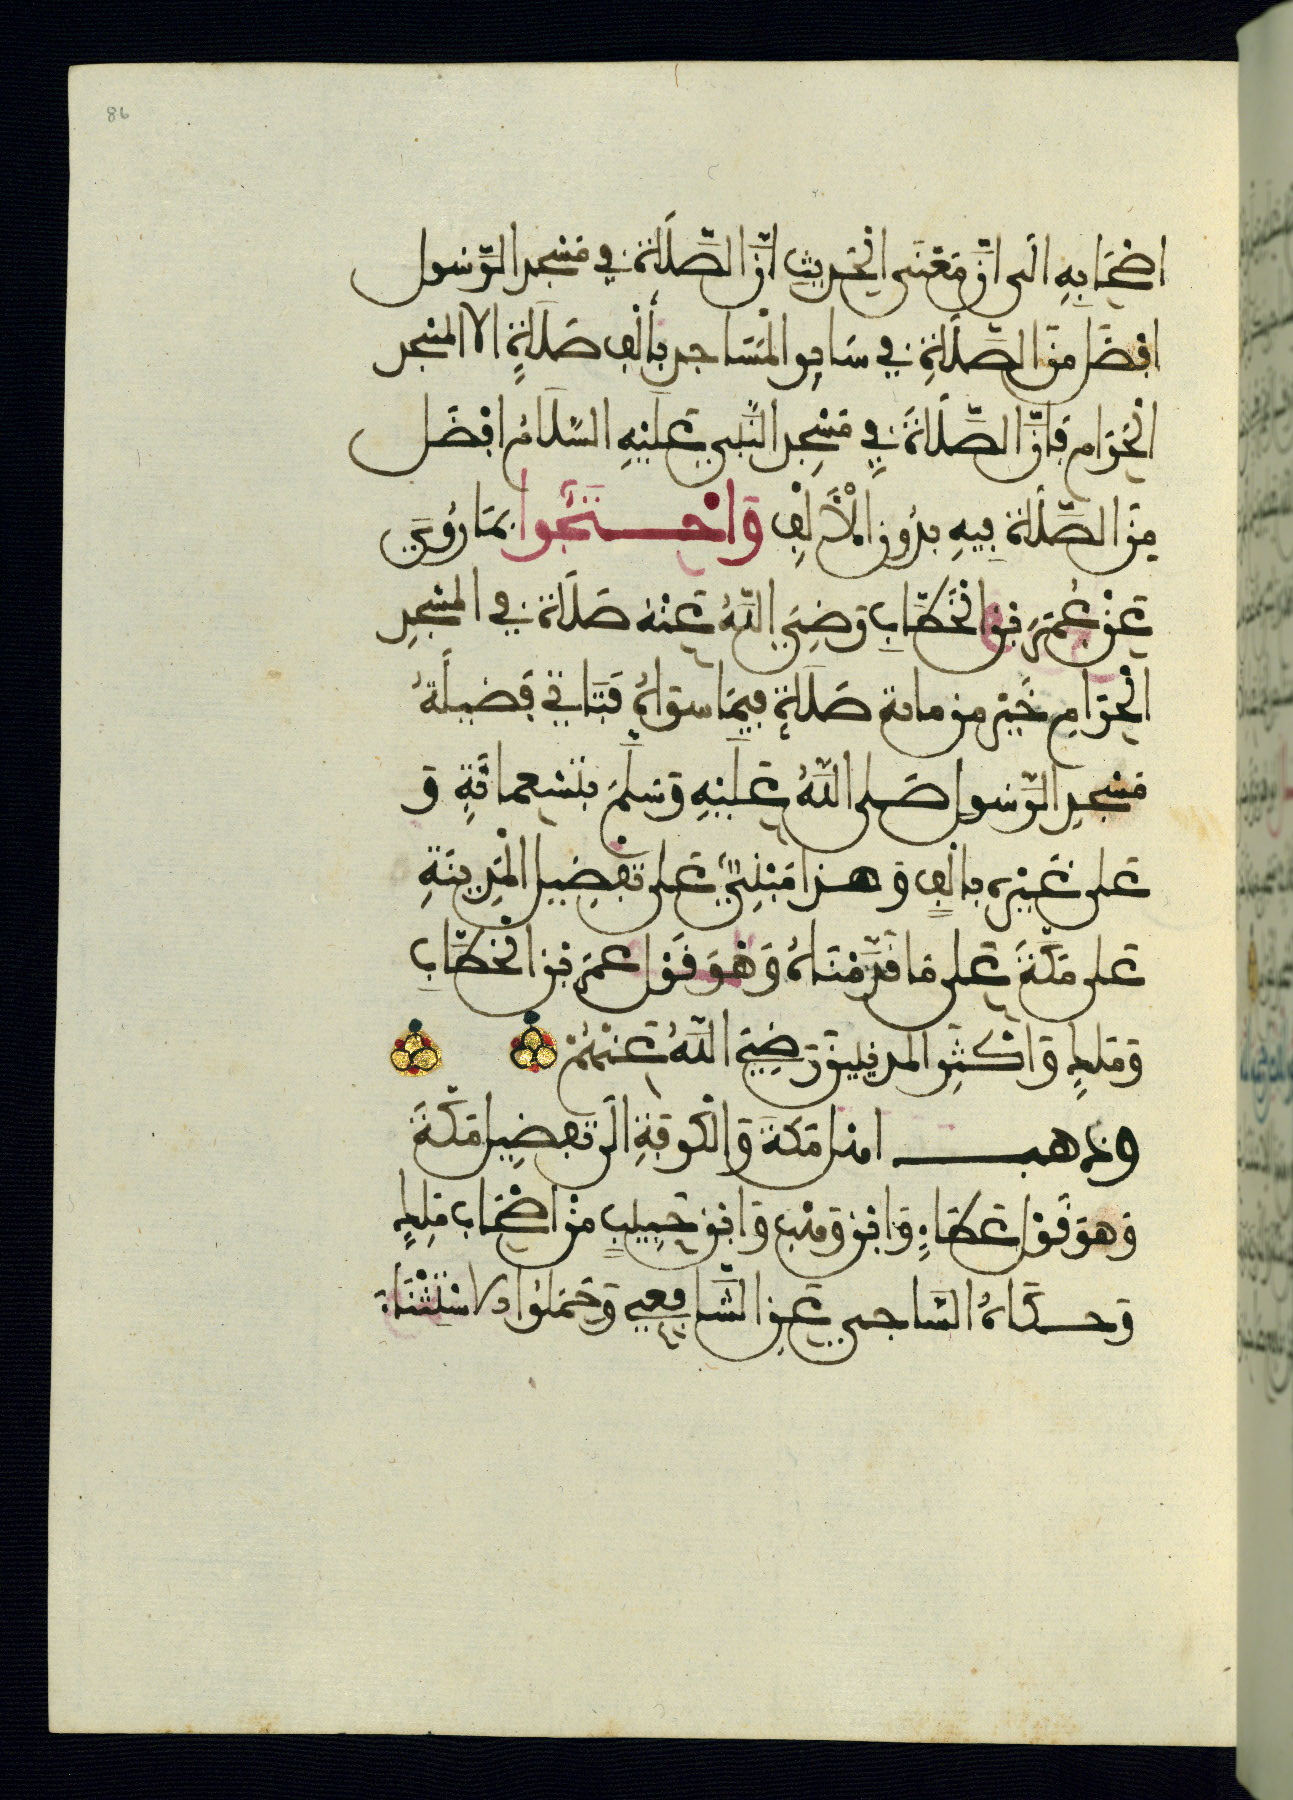 86
اصْحَابِهِ الَى انَّ مَعْنَى الْحَدِيثِ انَّ الصَّلَاةَ فِي مَسْجِدِ الرَّسُولِ
افْضَلُ مِنَ الصَّلَاةِ فِي سَايِرِ الْمَسَاجِدِ بِأَلْفِ صَلَاةٍ الا الْمَسْجِدَ
الْحَرَامَ فَانَّ الصَّلَاةَ فِي مَسْجِدِ النَّبِي عَلَيْهِ السَّلَامُ افْضَلُ
مِنَ الصَّلَاةِ فِيهِ بِدُونِ الْأَلْفِ وَاحْتَجُّوا بِمَا رُوِيَ
عَنْ عُمَرَ بْنِ الْخَطَّابِ رَضِيَ اللَّهُ عَنْهُ صَلَاةٌ فِي الْمَسْجِدِ
الْحَرَامِ خَيْرٌ مِن ماىة صَلَاةٍ فِيمَا سِوَاهُ فَتَاتِي فَضِيلَةُ
مَسْجِدِ الرَّسُولِ صَلَى اللَّهُ عَلَيْهِ وَسَلَّمَ بِتِسْعِمِائَةِ وَ
عَلَى غَيْرِهِ بِأَلْفٍ وَهَذَا مَبْنِيٌّ عَلَى تَفْضِيلِ الْمَدِينَةِ
عَلَى مَكَّةَ عَلَى مَا قَدَّمْنَاهُ وَهُوَ قَوْلُ عُمَرَ بْنِ الْخَطَّابِ
وَمَلِكٍ وَاكْثَرِ الْمَدَنِيِّينَ رَضِيَ اللَّهُ عَنْهُمْ
وذهب اهْلُ مَكَّةَ وَالْكُوفَةِ الَى تَفْضِيلِ مَكَّةَ
وَهُوَ قَوْلُ عَطَاءٍ وَابْنِ وَهْبٍ وَابْنِ حَبِيبٍ مِنْ اصْحَابِ مَلِكٍ
وَحَكَاهُ السَّاجِي عَنِ الشَّافِعِي وَحَمَلُوا الاسْتِثْنَاءَ